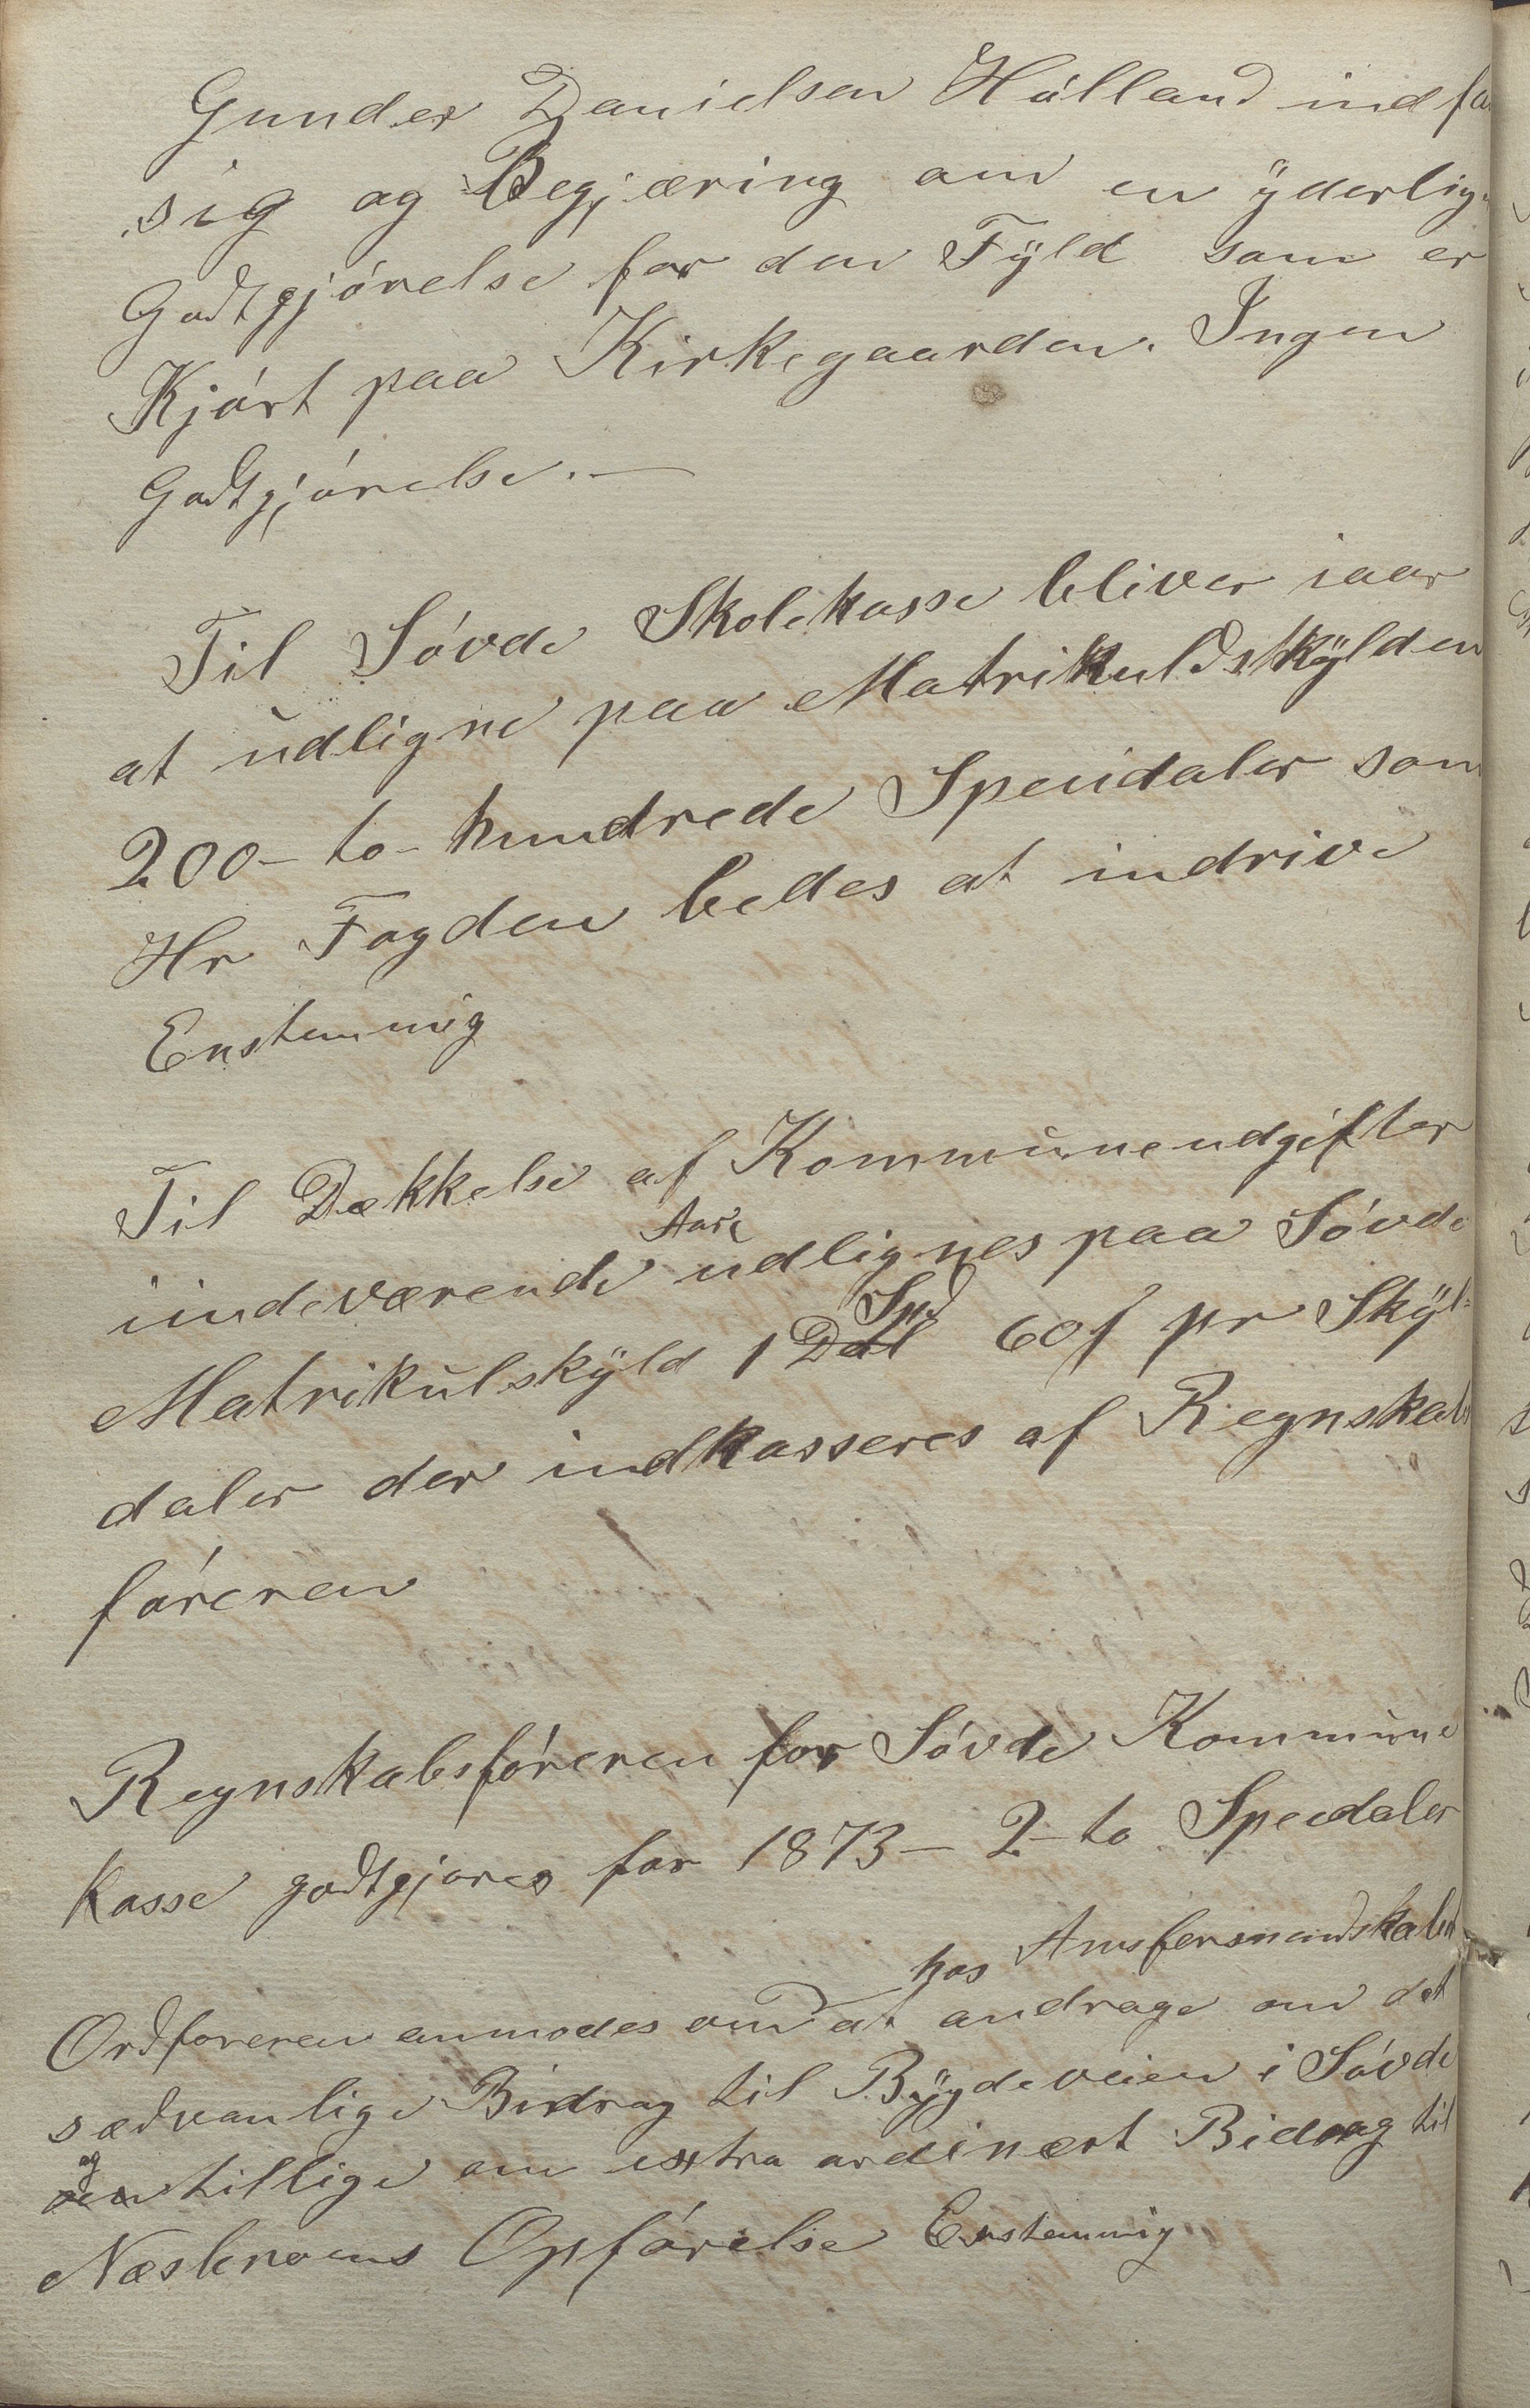 Gunder Danielsen Hålland indfa
sig og Begjæring om en yderlig
Godtgjørelse for den Fyld som er
Kjørt paa Kirkegaarden. Ingen
Godtgjørelse. —
Til Søvde Skolekasse bliver iaar
at udligne paa Matrikuldskylden
200 - to - hundrede Specidaler som
Hr Fogden bedes at indrive
Enstemmig
Til Dækkelse af Kommuneudgifter
iindeværende Aar udlignes paa Søvde
Matrikulskyld 1 Spd 60 s pr Skyl-
daler der indkasseres af Regnskabs
føreren
Regnskabsføreren for Søvde Kommune
Kasse godtgjøres for 1873 - 2 - to Specidaler
Ordføreren anmodes om at hos Amsformandskabet
andrage om det
sædvanlige Bidrag til Bygdeveien i Søvde
og tillige om extra ordinært Bidrag til
Næsbroens Opførelse Enstemmig